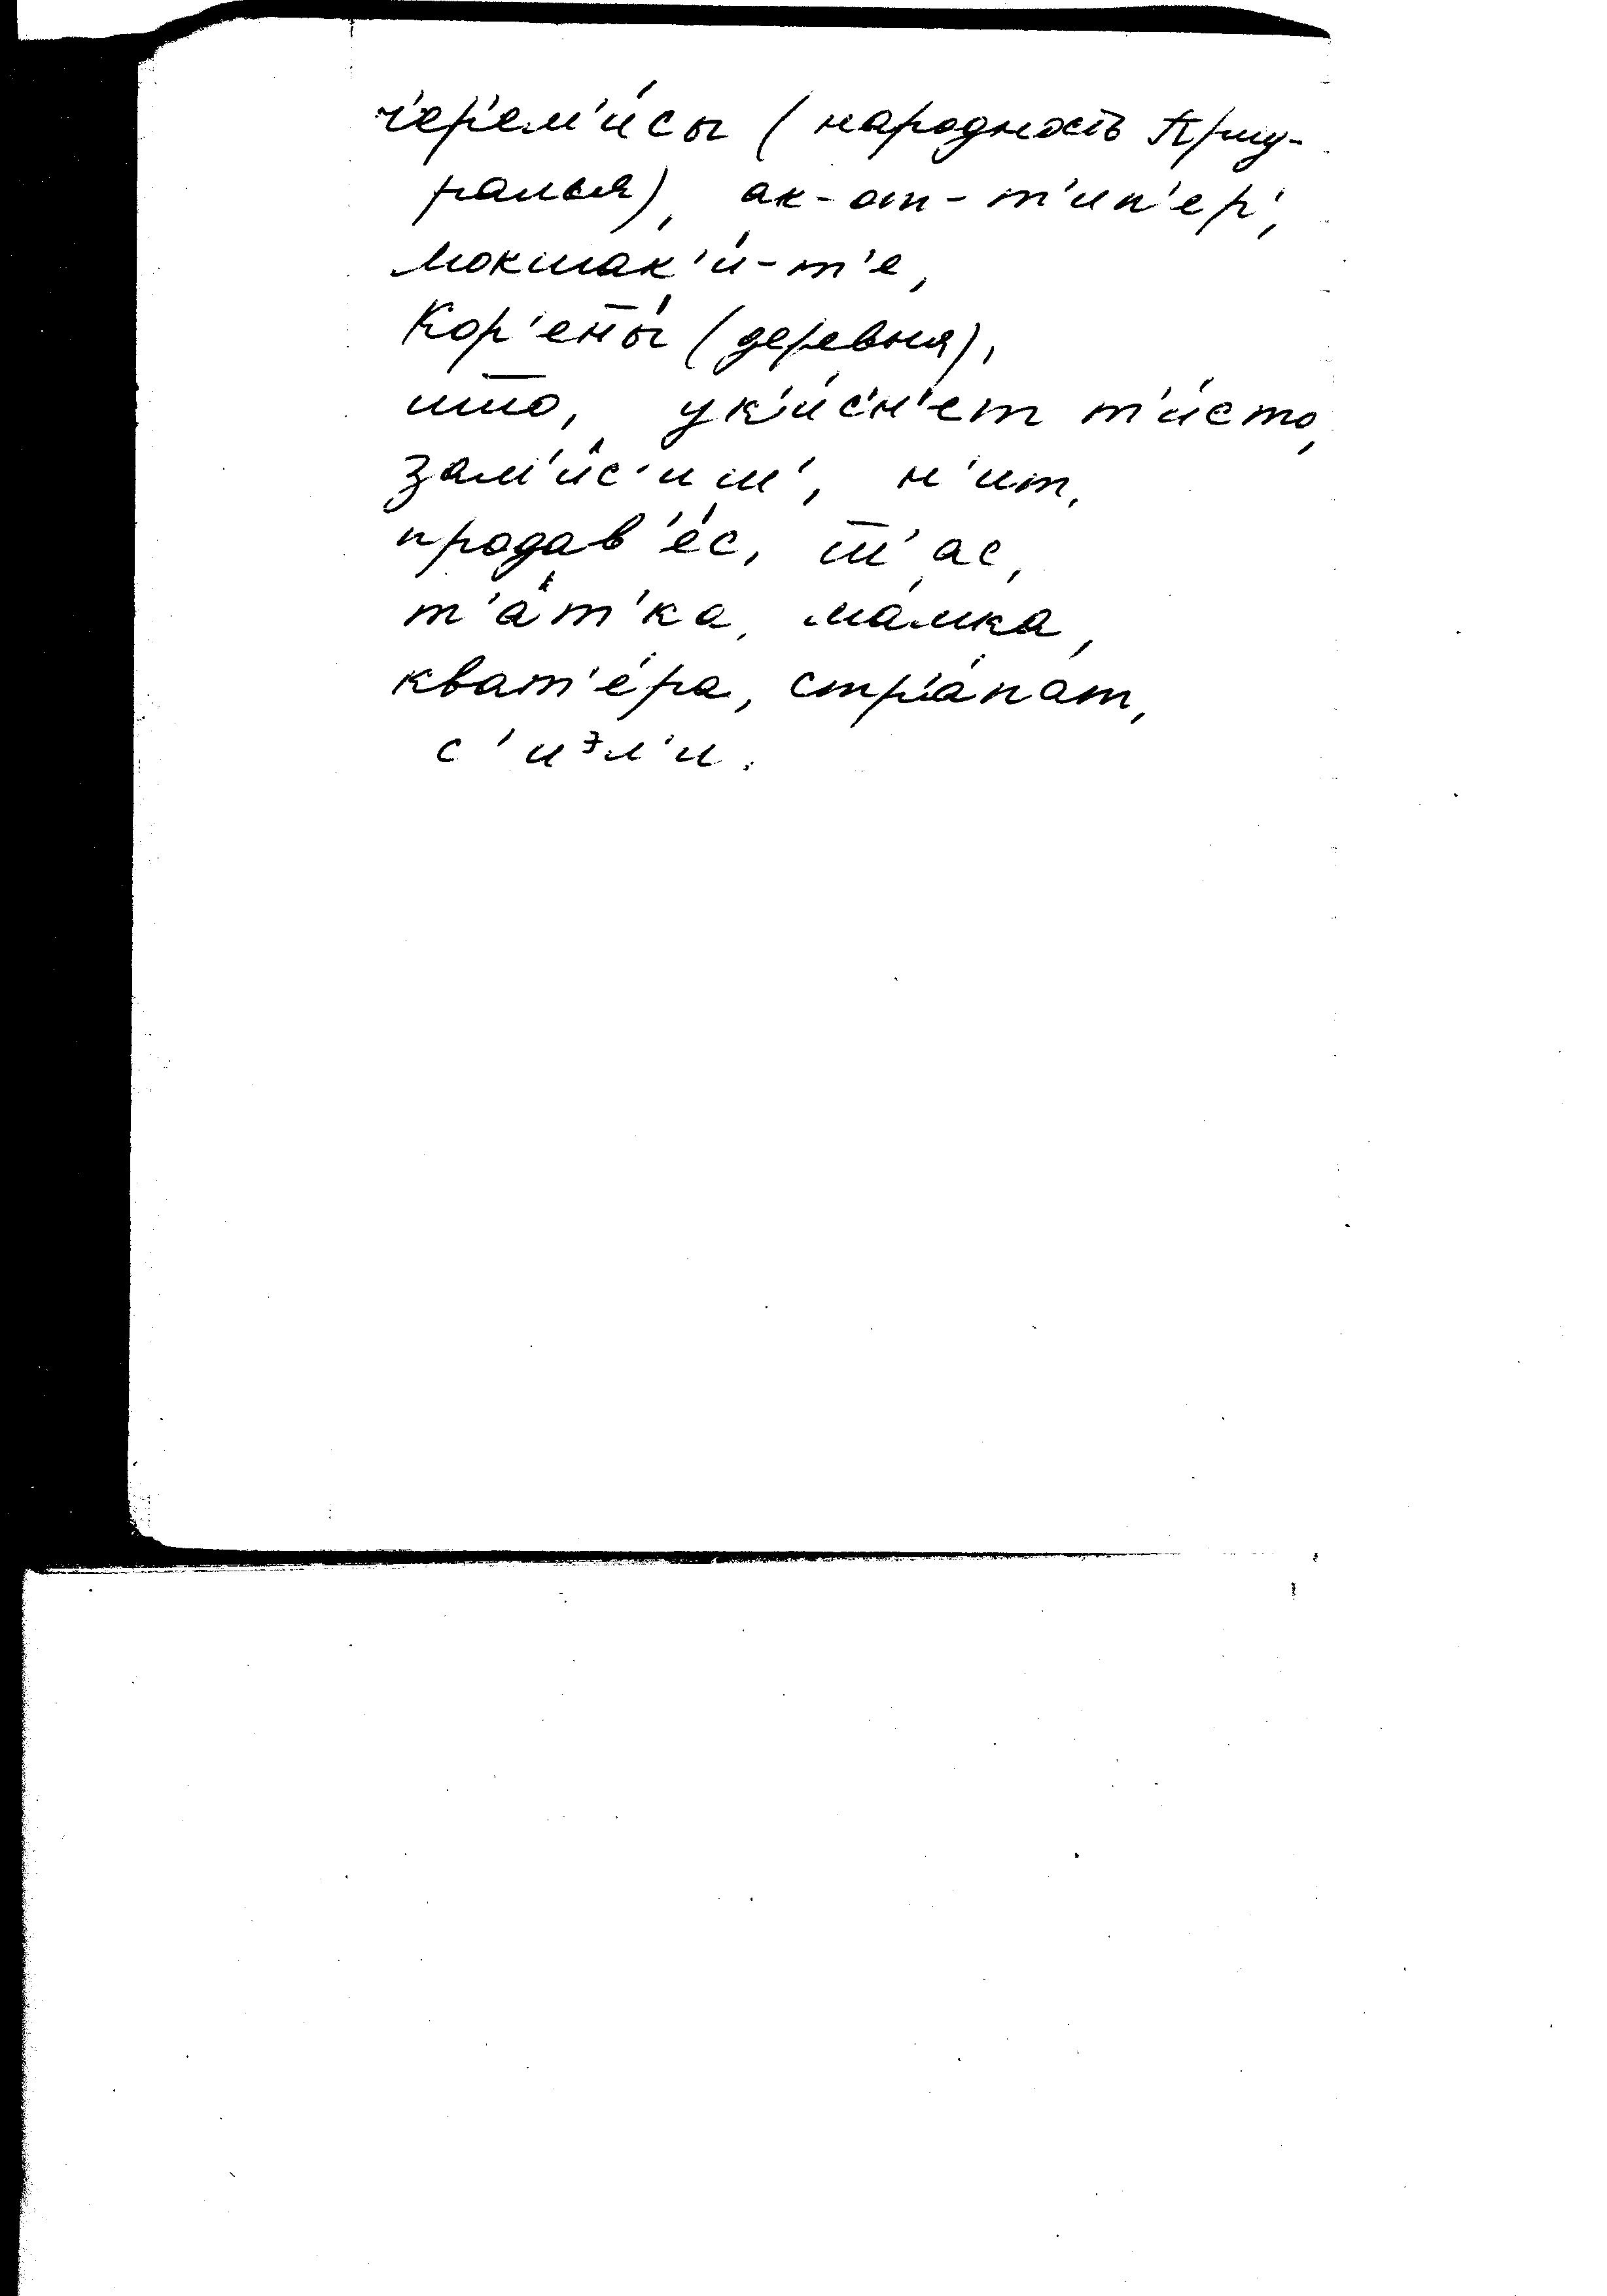 ч'ер'ем'и́сы (народность Приу-
ралья), ак-от-т'ип'ер',
мокшак'и́-т'е,
Кор'ен̄ы́ (деревня),
што, ук'и́с'н'ет т'и́сто,
зам'и́с'иш', н'ит,
продав'е́с, ш̄'ас,
т'а́т'ка, ма́мка,
кват'е́ра, стр'а́пат,
с'иᶟл'и.